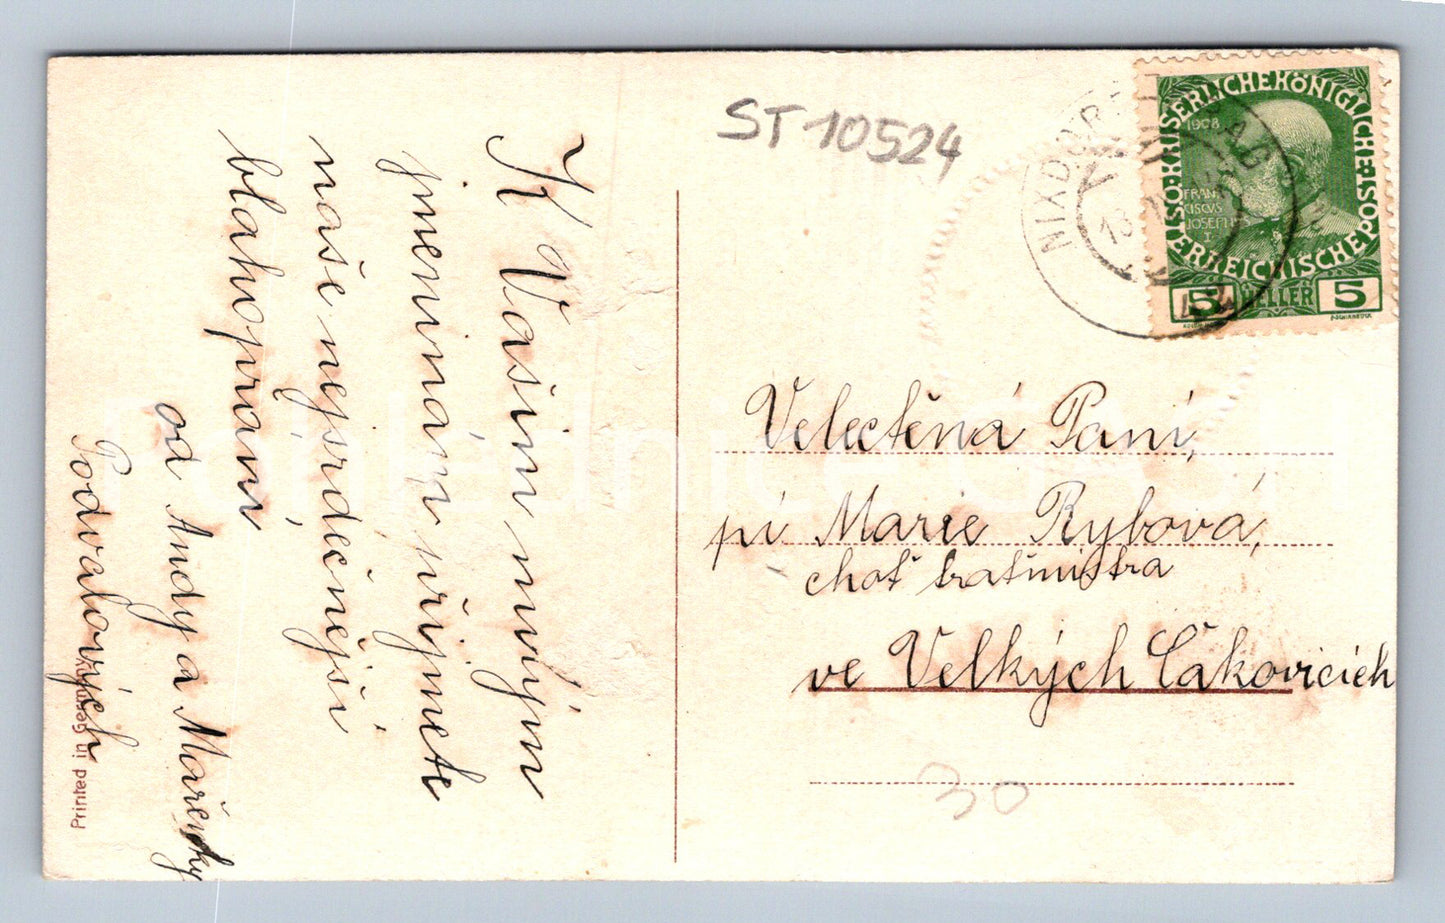 ST 10524
K Vašim milým
jmeninám přijmete
naše nejsrdečnější
blahopraní
od Andy a Mařenky
Podvalových
Printed in Germany
NIXDORF
13
KAISERLICHE KÖNIGLICHE
ÖSTERREICHISCHE POST
1908
FRAN
CISCVS
IOSEPH
I
5 HELLER 5
Velectěná Paní,
pí Marie Rybová,
choť traťmistra
ve Velkých Čakovicích
30
Pohlednice